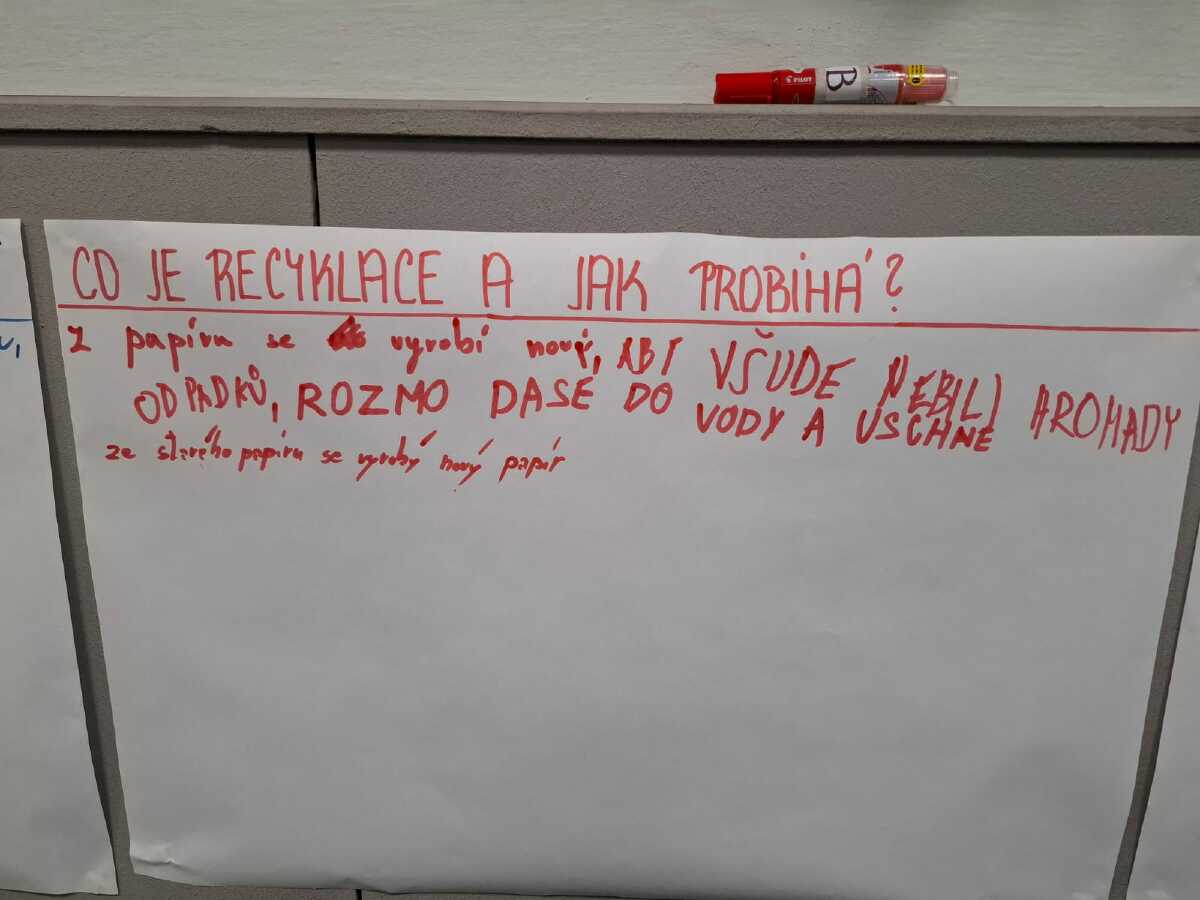 PILOT
B
CO JE RECYKLACE A JAK PROBÍHÁ?
Z papíru se vyrobí nový, ABY VŠUDE NEBILI HROMADY
ODPADKŮ, ROZMO DASE DO VODY A USCHNE
ze starého papíru se vyrobý nový papír